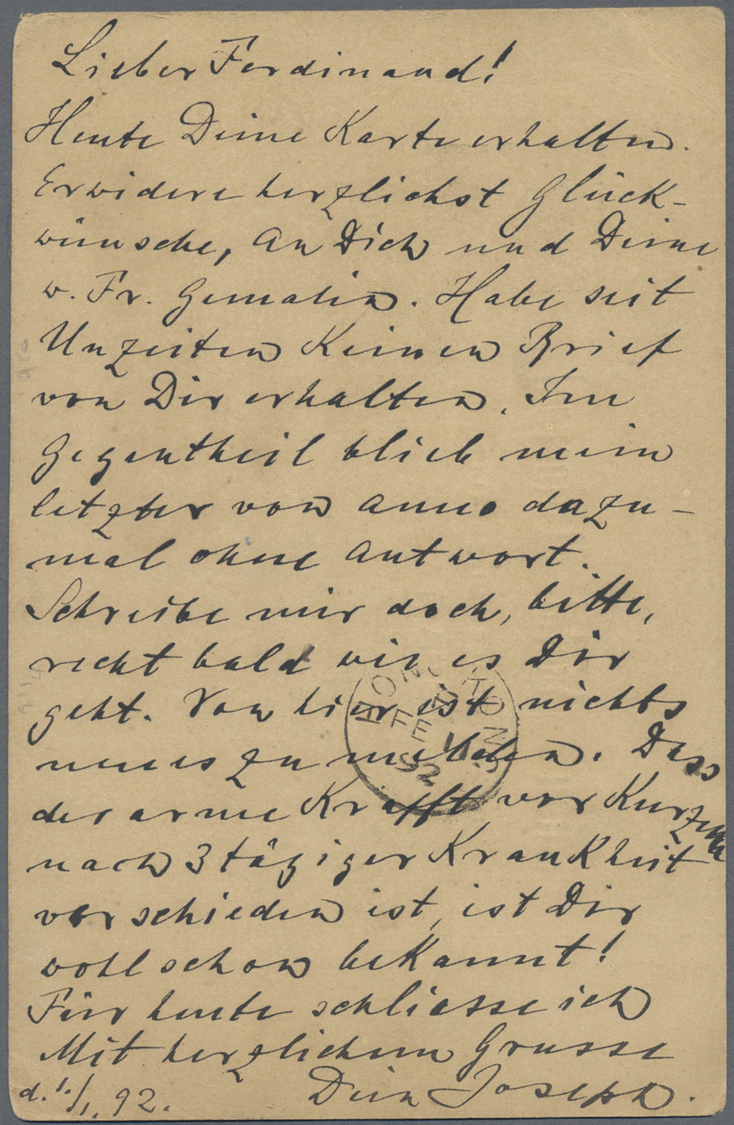 Lieber Ferdinand!
Heute Deine Karte erhalten.
Erwidere herzlichst Glück-
wünsche, an Dich und Deine
w. Fr. Gemalin. Habe seit
Unzeiten Keinen Brief
von Dir erhalten. Im
Gegentheil blieb mein
letzter von anno dazu-
mal ohne Antwort.
Schreibe mir doch, bitte,
recht bald wie es Dir
geht. Von hier ist nichts
neues zu melden. Dass
der arme Krafft vor Kurzem
nach 3 tägiger Krankheit
verschieden ist, ist Dir
wohl schon beKannt!
Für heute schliesse ich
Mit herzlichem Grusse
d. 1./1. 92. Dein Joseph.
HONG KONG
FE
92